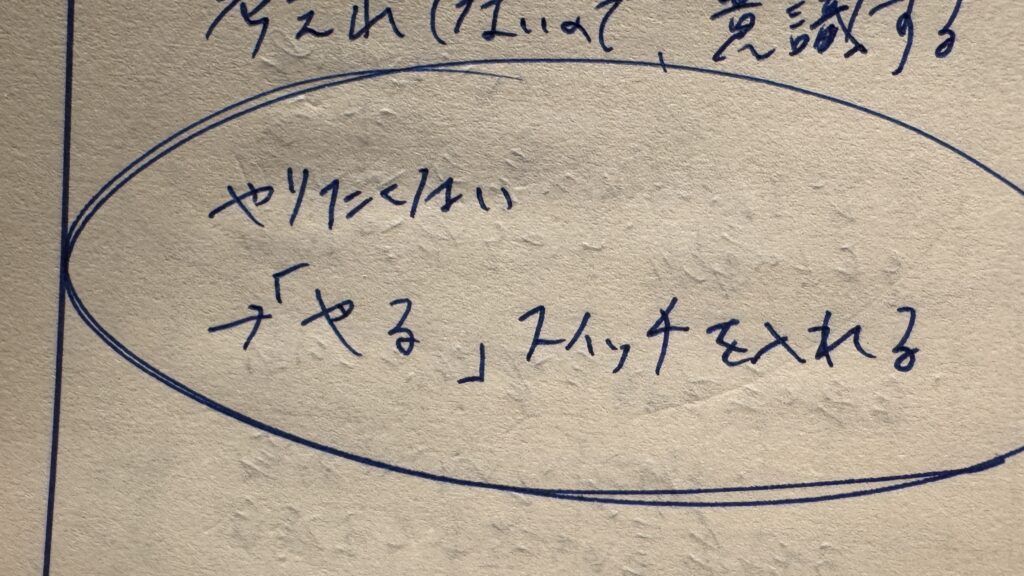 考えればいいので、意識する
やりたくない
→「やる」スイッチを入れる